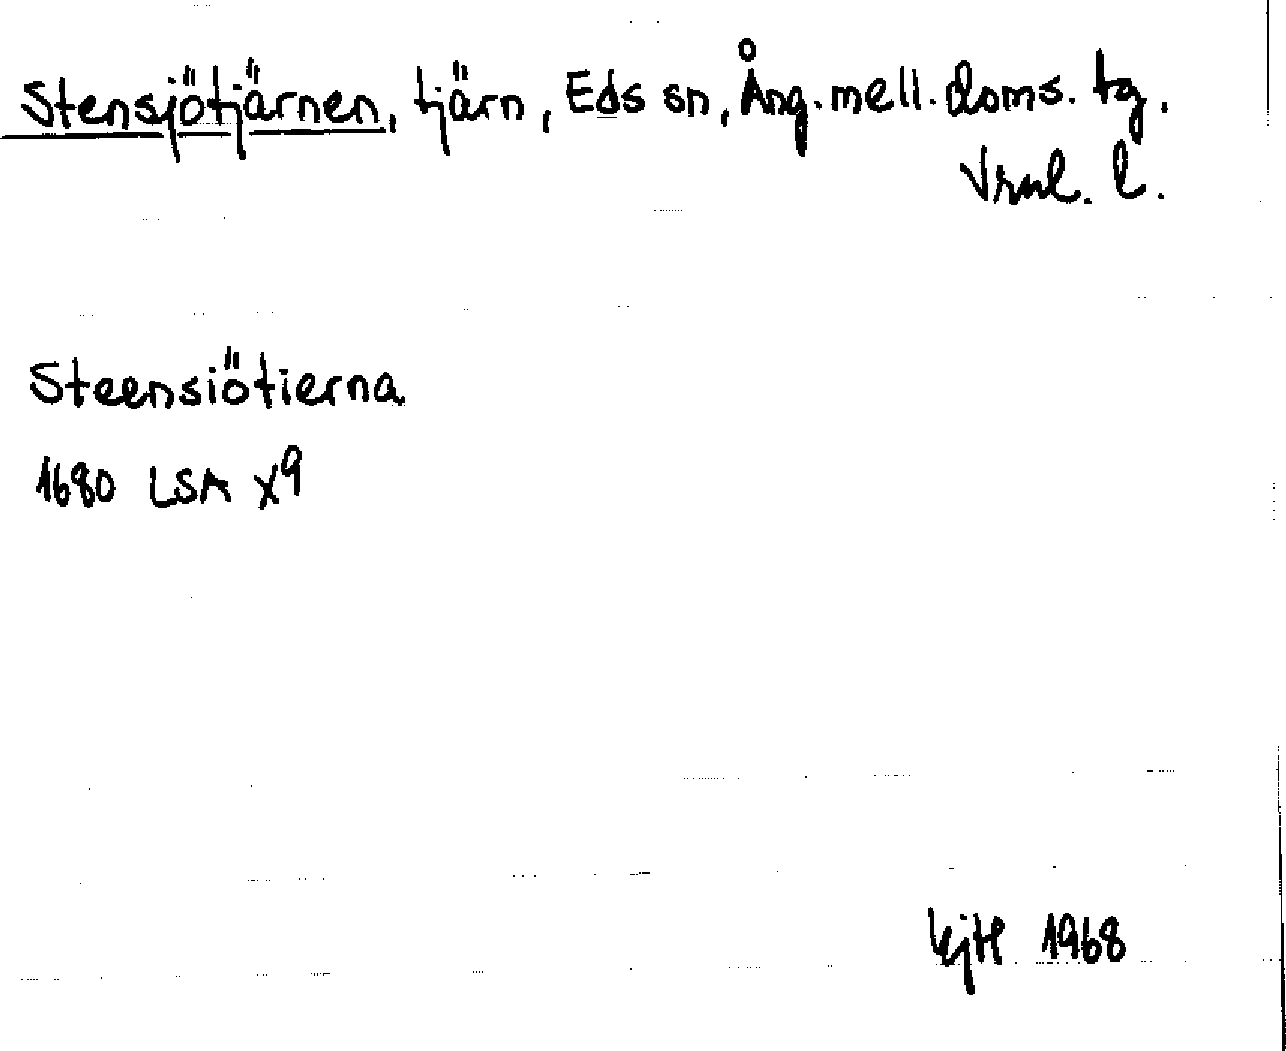 Stensjötjärnen, tjärn, Eds sn, Ång. mell. doms. tg.
Vrnl. l.
Steensiötierna
1680 LSA X9
1968